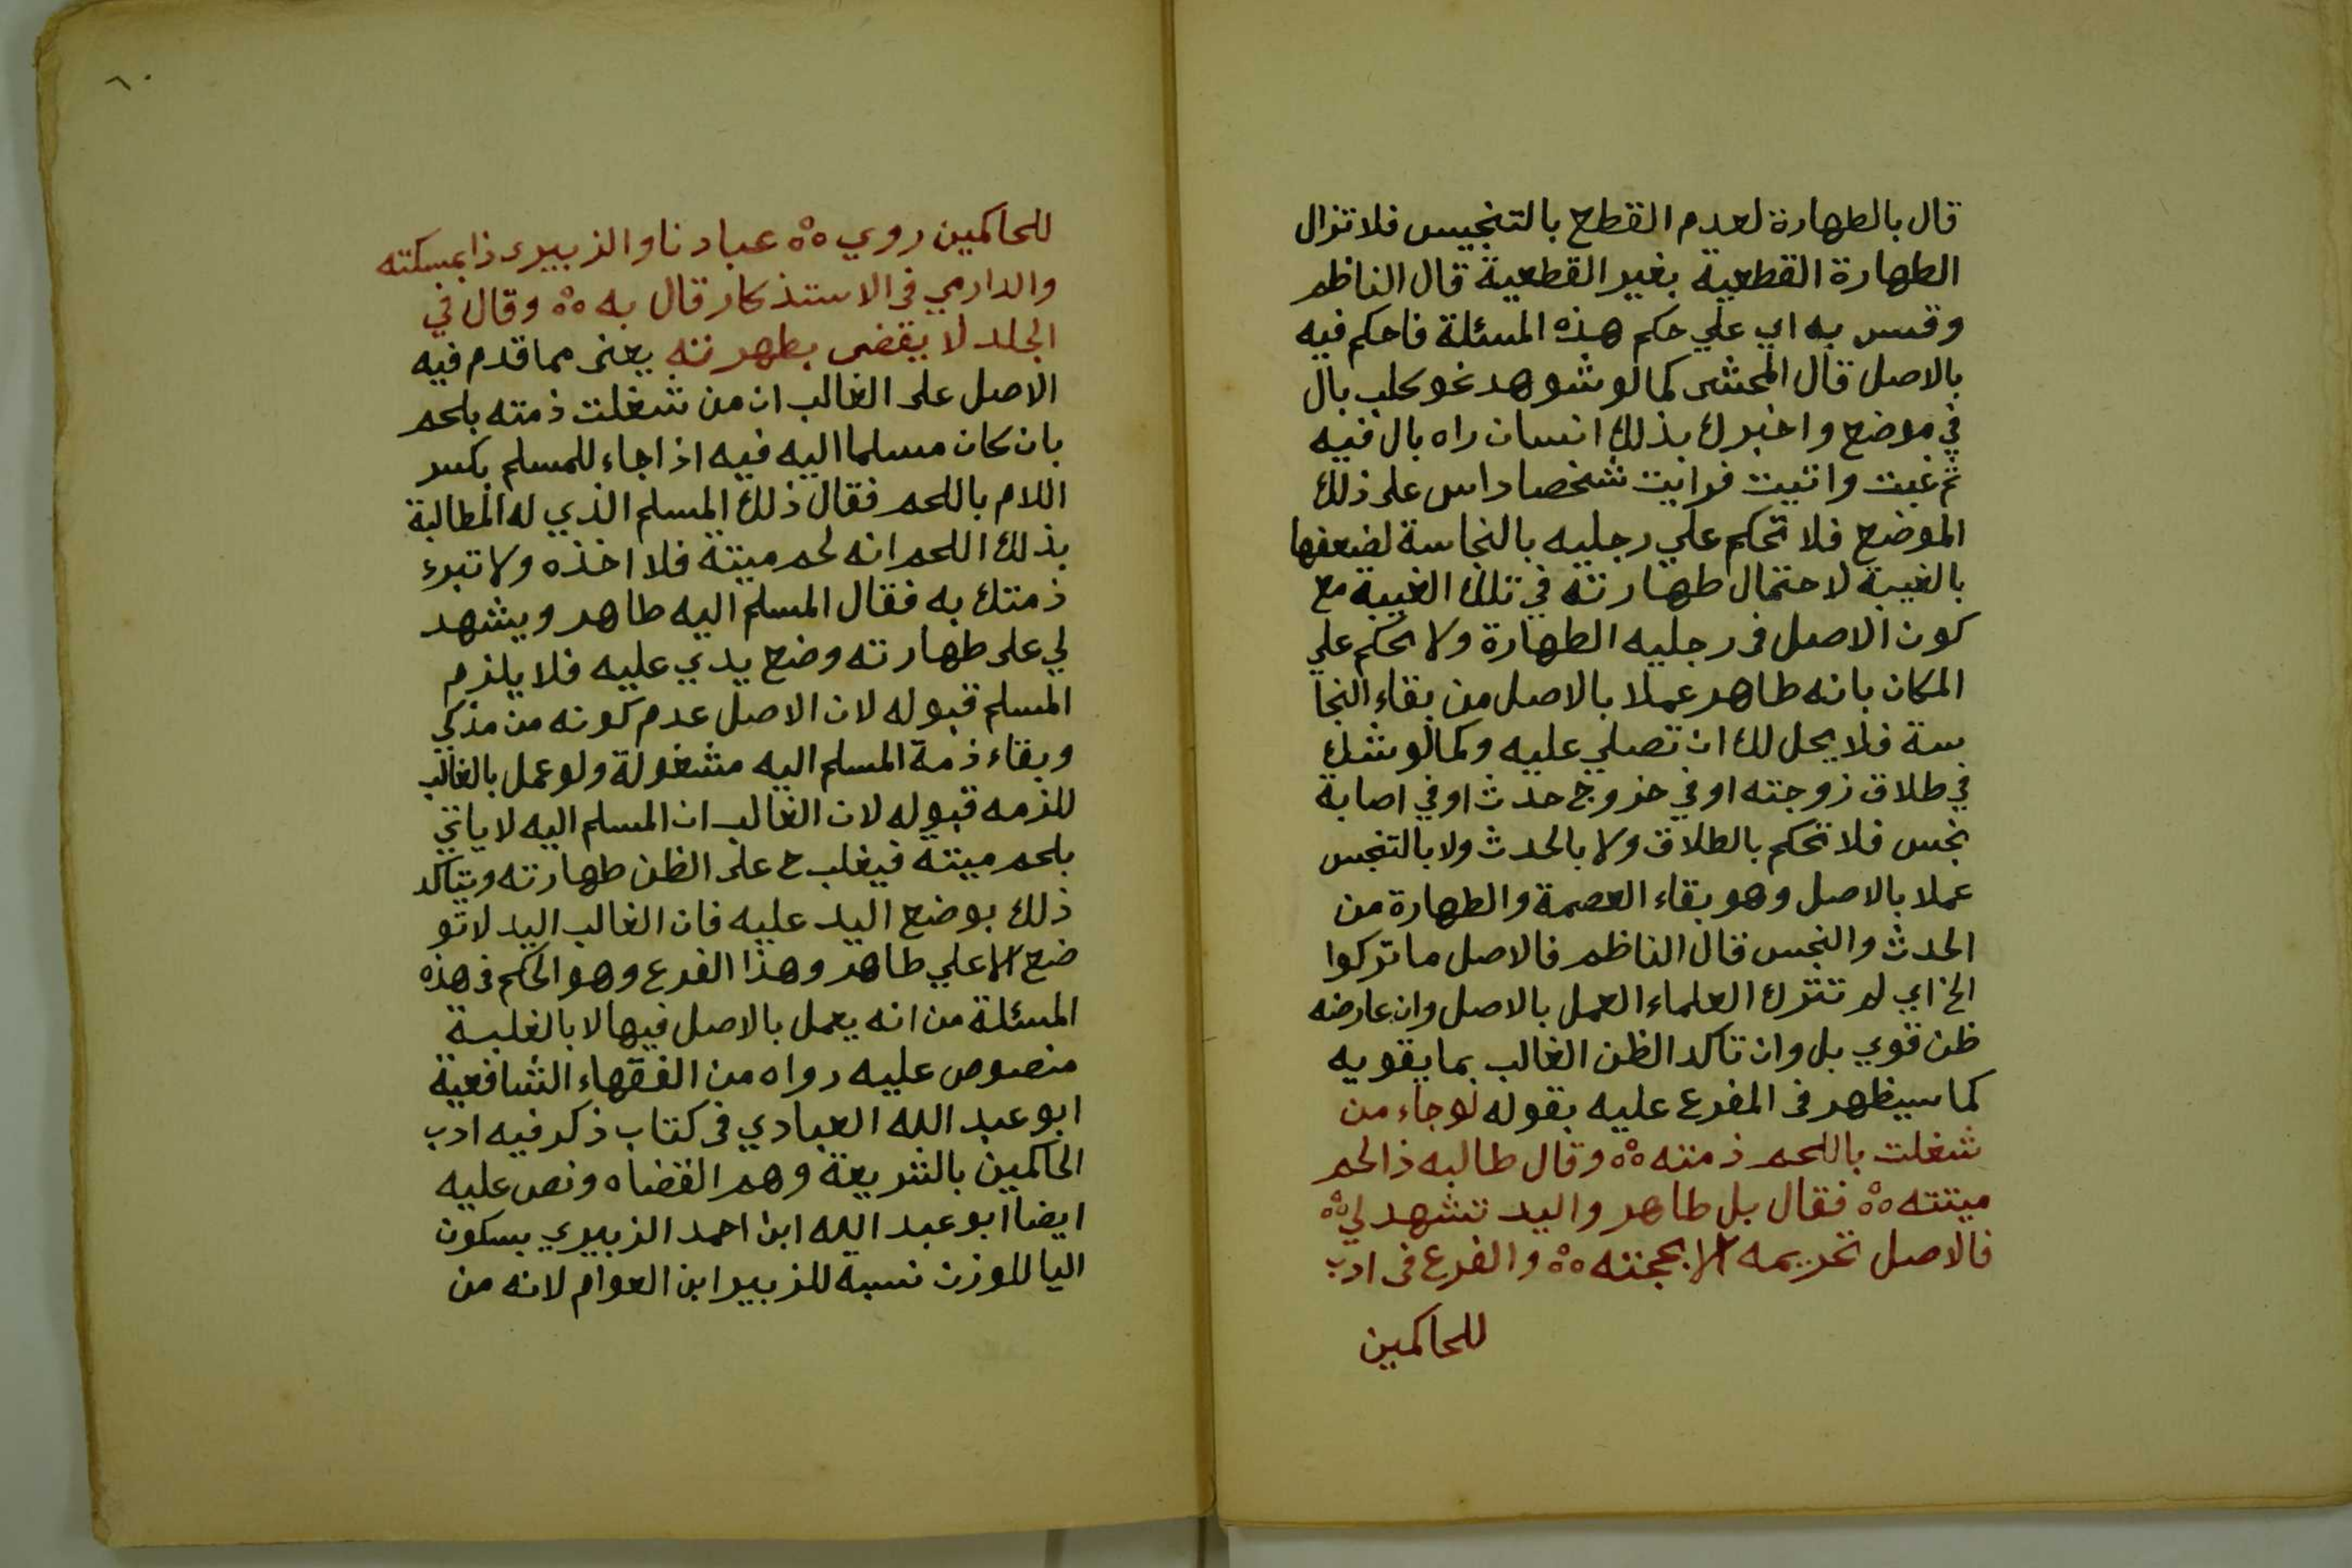 قال بالطهارة لعدم القطع بالتنجيس فلا تزال
الطهارة القطعية بغير القطعية قال الناظم
وقس به اي علي حكم هذه المسئلة فاحكم فيه
بالاصل قال المحشى كما لو شوهد نحو كلب بال
في موضع واخبرك بذلك انسان راه بال فيه
ثم غبت واتيت فرايت شخصا داس على ذلك
الموضع فلا تحكم علي رجليه بالنجاسة لضعفها
بالغيبة لاحتمال طهارته في تلك الغيبة مع
كون الاصل فى رجليه الطهارة ولا تحكم علي
المكان بانه طاهر عملا بالاصل من بقاء النجا
سة فلا يحل لك ان تصلي عليه وكما لو شك
في طلاق زوجته او في خروج حدث او في اصابة
نجس فلا تحكم بالطلاق ولا بالحدث ولا بالتنجس
عملا بالاصل وهو بقاء العصمة والطهارة من
الحدث والنجس قال الناظم فالاصل ما تركوا
الخ اي لم تترك العلماء العمل بالاصل وان عارضه
ظن قوي بل وان تاكد الظن الغالب بما يقويه
كما سيظهر فى المفرع عليه بقوله لو جاء من
شغلت باللحم ذمته ه وقال طالبه ذا لحم
ميتته ه فقال بل طاهر واليد تشهد لي ه
فالاصل تحريمه الا بحجته ه والفرع فى ادب
للحاكمين
٦٠
للحاكمين روي ه عبادنا والزبيرى ذا بمسكته
والدارمي فى الاستذكار قال به ه وقال في
الجلد لا يقضى بطهرته يعنى مما قدم فيه
الاصل على الغالب ان من شغلت ذمته بلحم
بان كان مسلما اليه فيه اذا جاء للمسلم بكسر
اللام باللحم فقال ذلك المسلم الذي له المطالبة
بذلك اللحم انه لحم ميتة فلا اخذه ولا تبرء
ذمتك به فقال المسلم اليه طاهر ويشهد
لي على طهارته وضع يدي عليه فلا يلزم
المسلم قبوله لان الاصل عدم كونه من مذكي
وبقاء ذمة المسلم اليه مشغولة ولو عمل بالغالب
للزمه قبوله لان الغالب ان المسلم اليه لا ياتي
بلحم ميتة فيغلب ح على الظن طهارته ويتاكد
ذلك بوضع اليد عليه فان الغالب اليد لا تو
ضع الا علي طاهر وهذا الفرع وهو الحكم فى هذه
المسئلة من انه يعمل بالاصل فيها لا بالغلبة
منصوص عليه رواه من الفقهاء الشافعية
ابو عبد الله العبادي فى كتاب ذكر فيه ادب
الحاكمين بالشريعة وهم القضاه ونص عليه
ايضا ابو عبد الله ابن احمد الزبيري بسكون
اليا للوزن نسبه للزبير ابن العوام لانه من